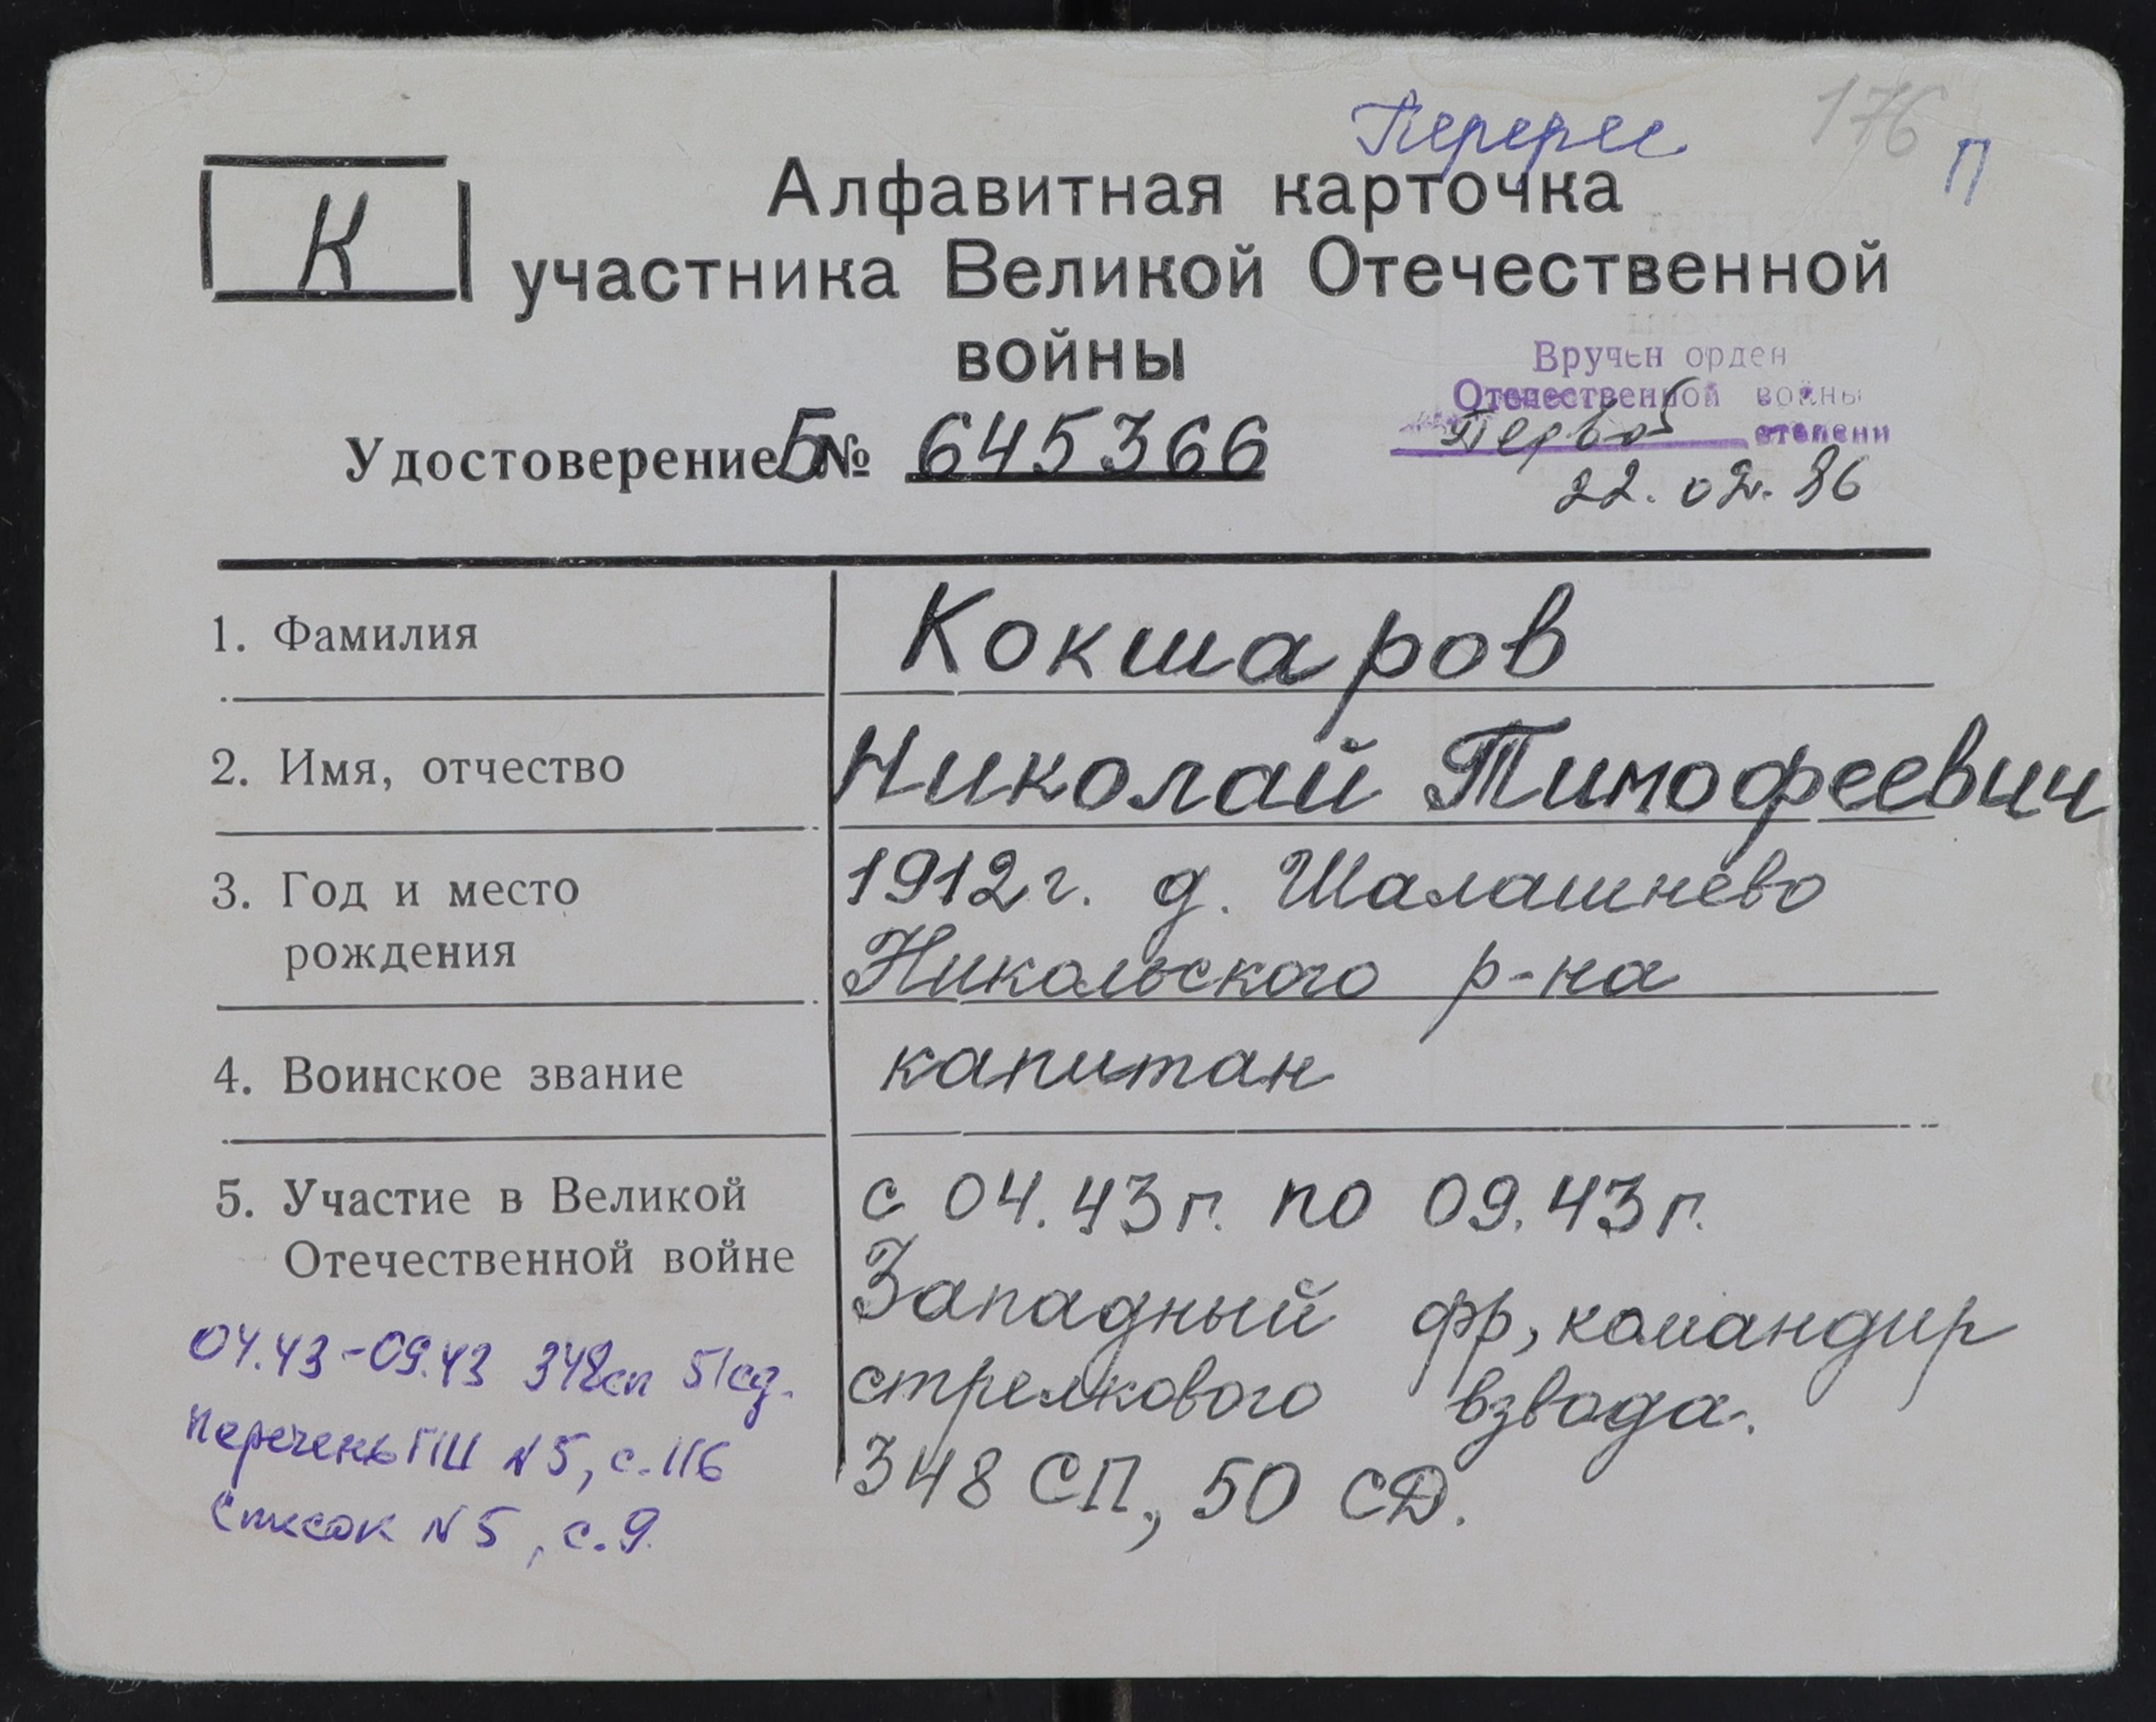 176
П
К
Алфавитная карточка
участника Великой Отечественной
войны
Вручен орден
Отечественной войны
Первой степени
22.02.86
Удостоверение Б № 645366
1. Фамилия
Кокшаров
2. Имя, отчество
Николай Тимофеевич
3. Год и место
рождения
1912 г. д. Шалашнево
Никольского р-на
4. Воинское звание
капитан
5. Участие в Великой
Отечественной войне
с 04.43 г. по 09.43 г.
Западный фр, командир
стрелкового взвода.
348 СП, 50 СД.
04.43-09.43 348сп 51сд.
Перечень ГШ N5, с.116
Список N5, с.9.